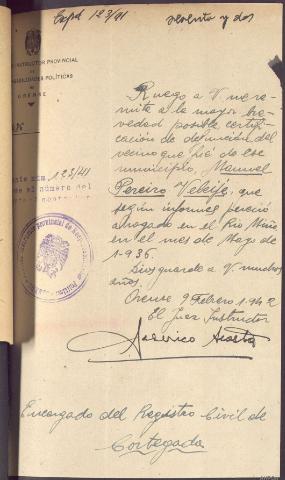 Expd 123/41
setenta y dos
INSTRUCTOR PROVINCIAL
RESPONSABILIDADES POLÍTICAS
ORENSE
núm. 123/41
el número del
Ruego a V. me re-
mita a la mayor bre-
vedad posible certifi-
cación de defunción del
vecino que fué de ese
municipio, Manuel
Pereiro, que
según informes pereció
ahogado en el Río Miño
en el mes de Mayo de
1.936.
Dios guarde a V. muchos
años.
Orense 9 Febrero 1942
El Juez Instructor
Acosta
Encargado del Registro Civil de
Cortegada